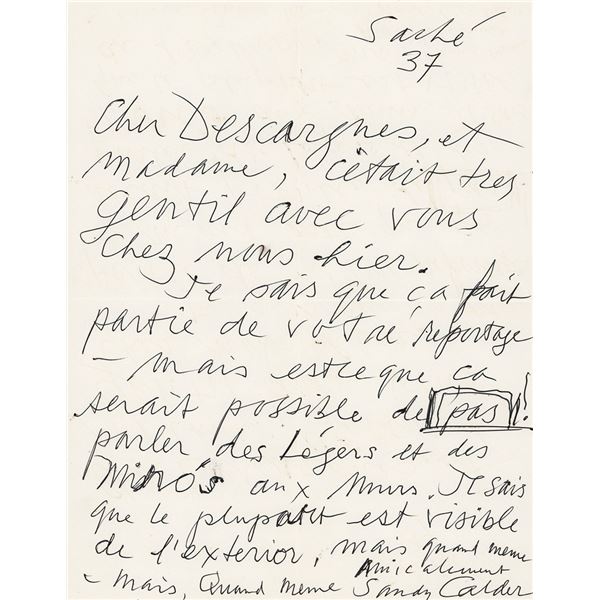 Saché
37
Cher Descargues, et
Madame, c'était tres
gentil avec vous
chez nous hier.
Je sais que ça fait
partie de votre reportage
– mais estce que ça
serait possible de pas
parler des Légers et des
Miró's aux murs. Je sais
que le plupart est visible
de l'exterior, mais quand meme
Amicalement
– mais, Quand meme Sandy Calder